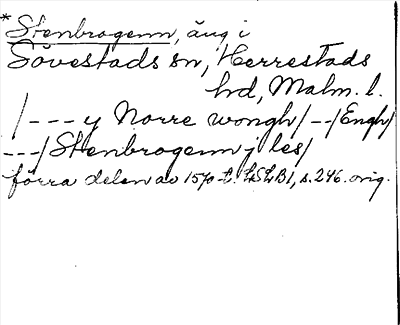 * Stenbrogenn, äng i
Sövestads sn, Herrestads
hd, Malm. l.
/--- y Norre wongh/--/Engh/
---/Stenbrogenn j les/
förra delen av 1570-t. LSLB1, s. 246. orig.